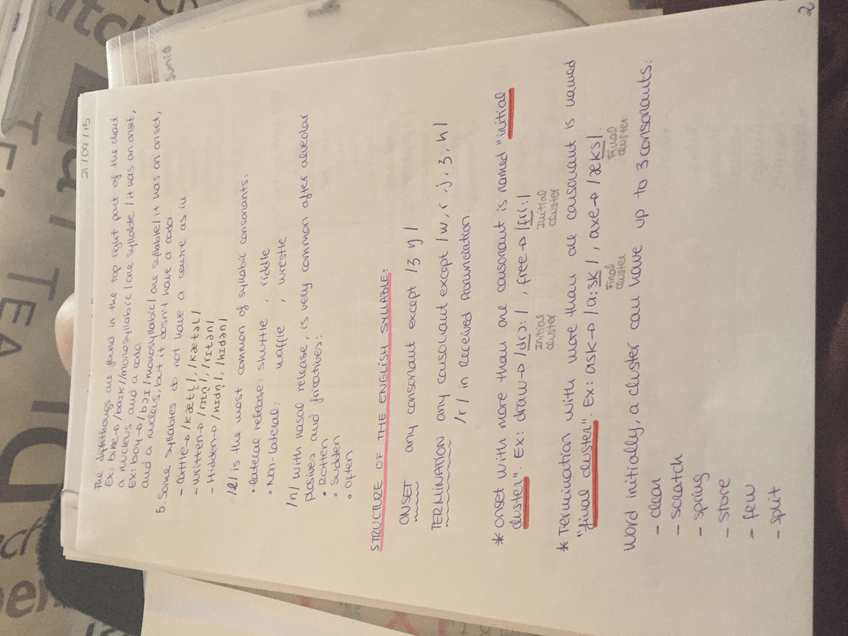 21/09/15
The diphthongs are found in the top right part of the chart
Ex: bike → /baɪk/ /monosyllabic/ one syllable / it has an onset,
a nucleus and a coda
Ex: boy → /bɔɪ/ monosyllabic/ one syllable/ it has an onset,
and a nucleus, but it doesn't have a coda
5. Some syllables do not have a centre as in:
- Cattle → /kætl̩/, /kætəl/
- written → /rɪtn̩/, /rɪtən/
- Hidden → /hɪdn̩/, /hɪdən/
/l/ is the most common of syllabic consonants.
• lateral release: shuttle, riddle
• Non-lateral: waffle, wrestle
/n/ with nasal release, is very common after alveolar
plosives and fricatives:
• Rotten
• Sudden
• often
STRUCTURE OF THE ENGLISH SYLLABLE:
ONSET any consonant except /ʒ ŋ/
TERMINATION any consonant except /w, r, j, ʒ, h/
/r/ in Received Pronunciation.
* Onset with more than one consonant is named "initial
cluster". Ex: draw → /drɔ:/, free → /fri:/
Initial cluster
Initial cluster
* Termination with more than one consonant is named
"final cluster". Ex: ask → /a:sk/, axe → /æks/.
Final cluster
Final cluster
Word initially, a cluster can have up to 3 consonants:
- clear
- scratch
- spring
- store
- few
- split
2